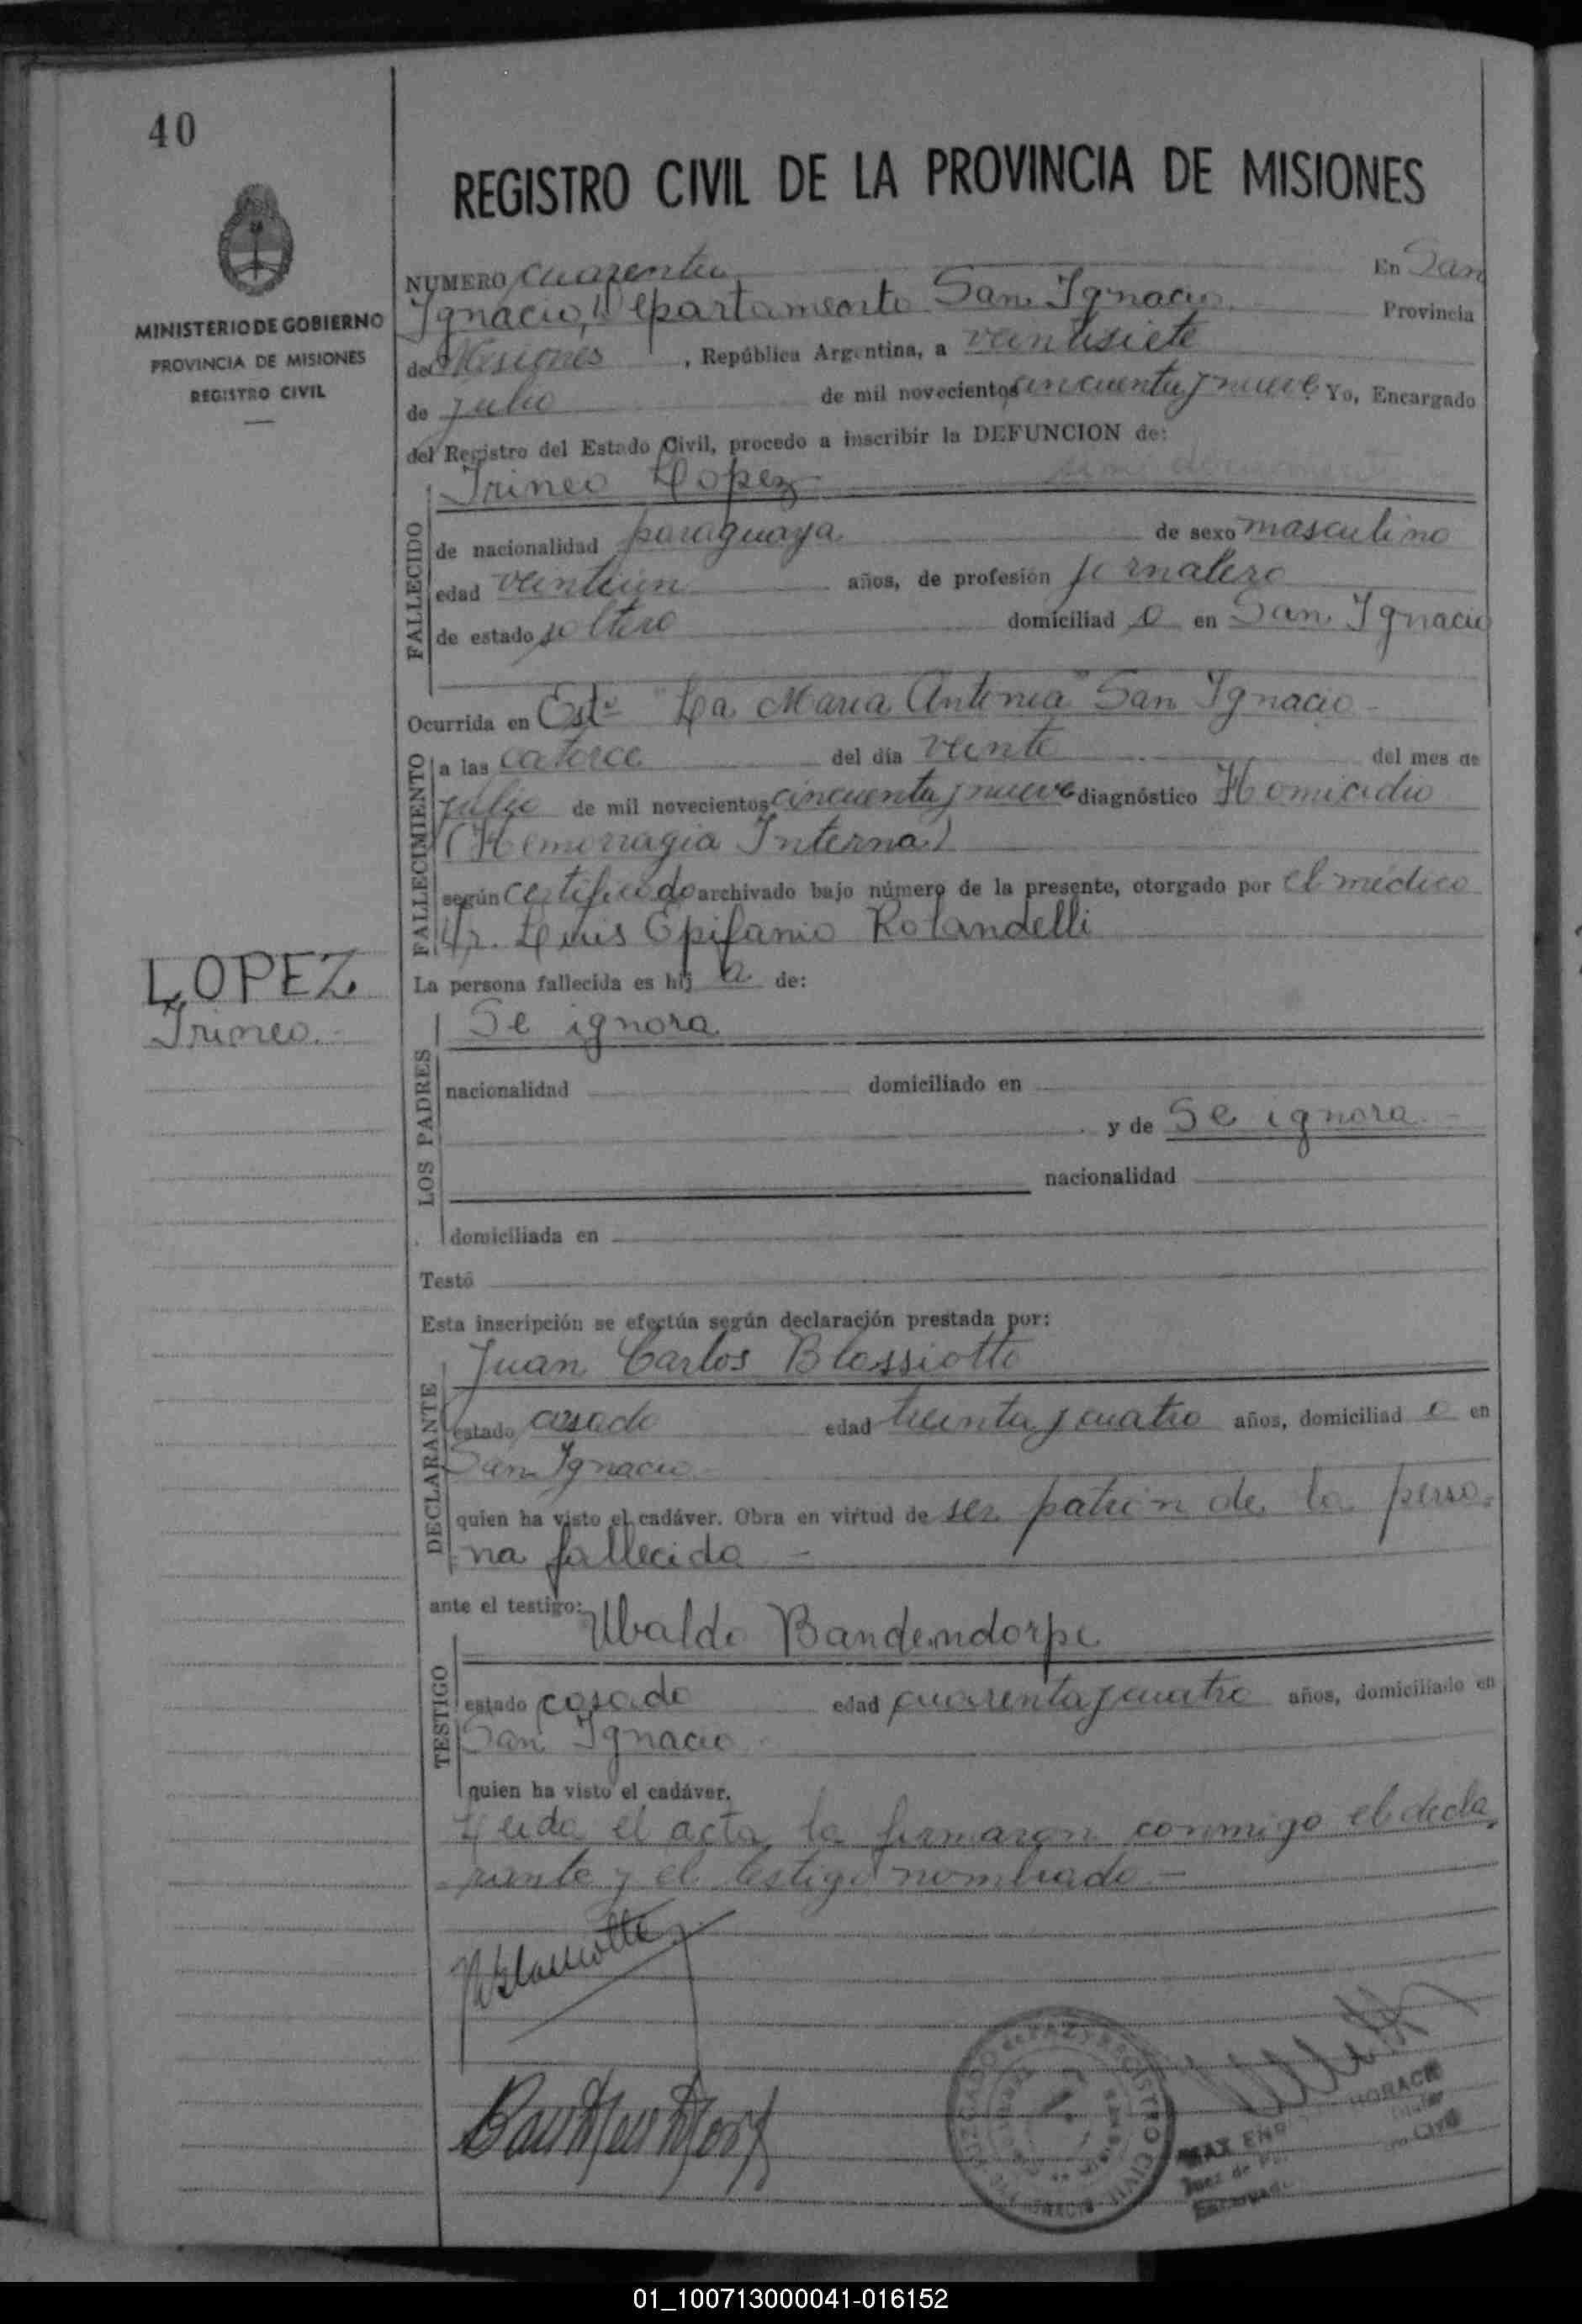 40
REGISTRO CIVIL DE LA PROVINCIA DE MISIONES
MINISTERIO DE GOBIERNO
PROVINCIA DE MISIONES
REGISTRO CIVIL
NUMERO cuarenta En San
Ignacio, Departamento San Ignacio Provincia
de Misiones, República Argentina, a veintisiete
de julio de mil novecientos cincuenta y nueve Yo, Encargado
del Registro del Estado Civil, procedo a inscribir la DEFUNCION de:
Irineo Lopez
FALLECIDO
de nacionalidad paraguaya de sexo masculino
edad veintiún años, de profesión jornalero
de estado soltero domiciliado en San Ignacio
Ocurrida en Estº "La Maria Antonia" San Ignacio -
FALLECIMIENTO
a las catorce del día veinte del mes de
julio de mil novecientos cincuenta y nueve diagnóstico Homicidio
(Hemorragia Interna)
según certificado archivado bajo número de la presente, otorgado por el médico
Dr. Luis Epifanio Rolandelli
La persona fallecida es hija de:
LOPEZ
Irineo.-
LOS PADRES
Se ignora
nacionalidad domiciliado en
y de Se ignora -
nacionalidad
domiciliada en
Testó
Esta inscripción se efectúa según declaración prestada por:
DECLARANTE
Juan Carlos Blossiotto
estado casado edad treinta y cuatro años, domiciliado en
San Ignacio -
quien ha visto el cadáver. Obra en virtud de ser patrón de la perso-
na fallecida -
ante el testigo: Ubaldo Bandendorpe
TESTIGO
estado casado edad cuarenta y cuatro años, domiciliado en
San Ignacio
quien ha visto el cadáver.
Leida el acta, la firmaron conmigo el decla-
rante y el testigo nombrado -
JUZGADO DE PAZ Y REGISTRO CIVIL
SAN IGNACIO
MAX HORACI
Juez de
Encargado Civil
01_100713000041-016152